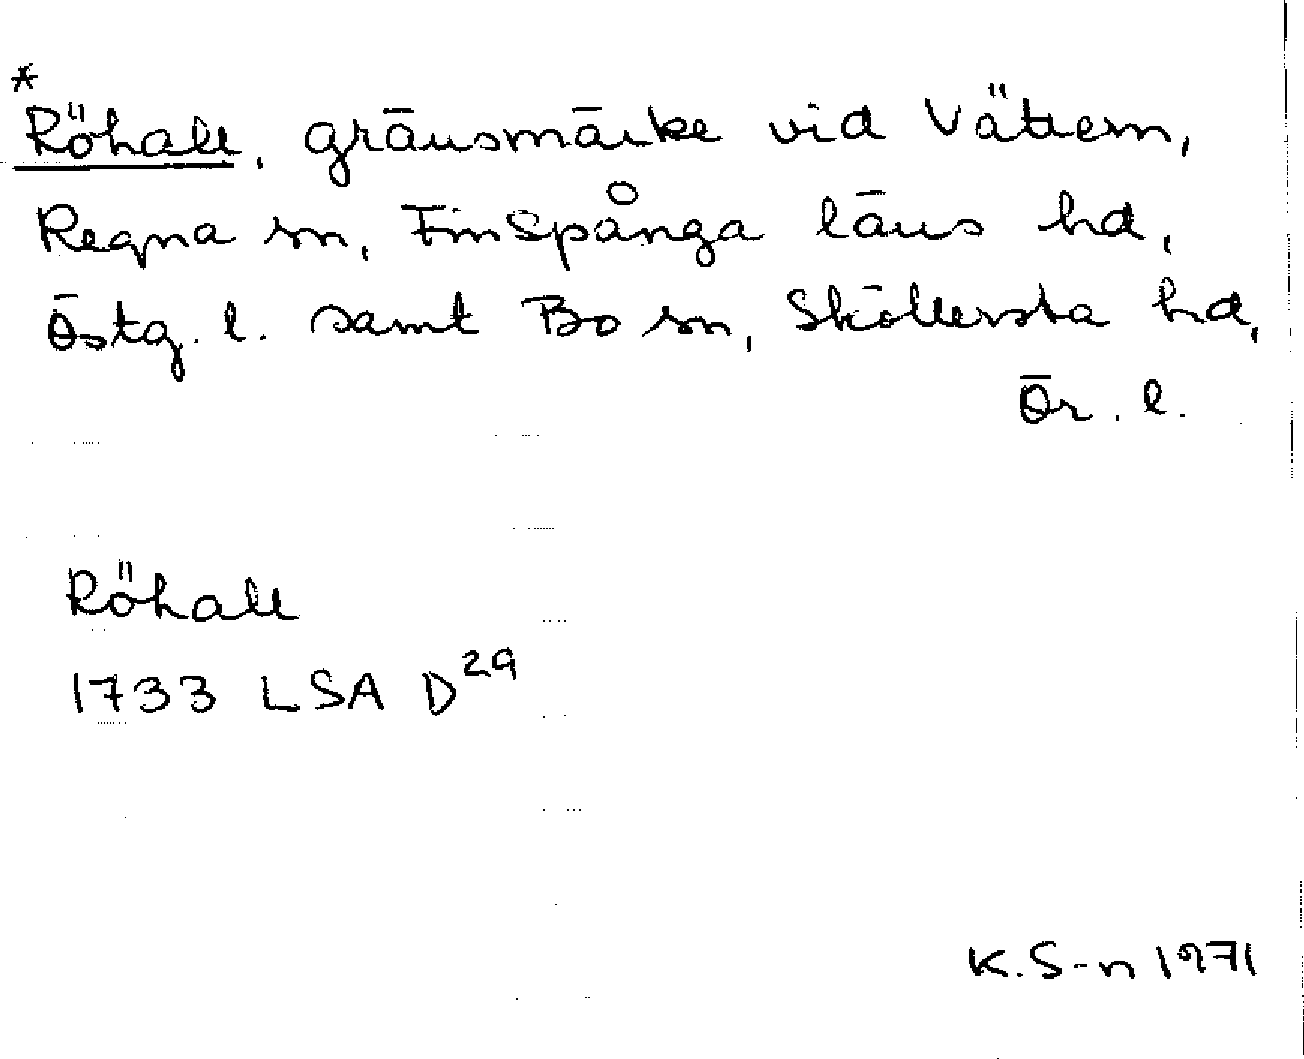 *
Röhall, gränsmärke vid Vättern,
Regna sn, Finspånga läns hd,
Östg. l. samt Bo sn, Sköllersta hd,
Ör. l.
Röhall
1733 LSA D29
K.S-n 1971